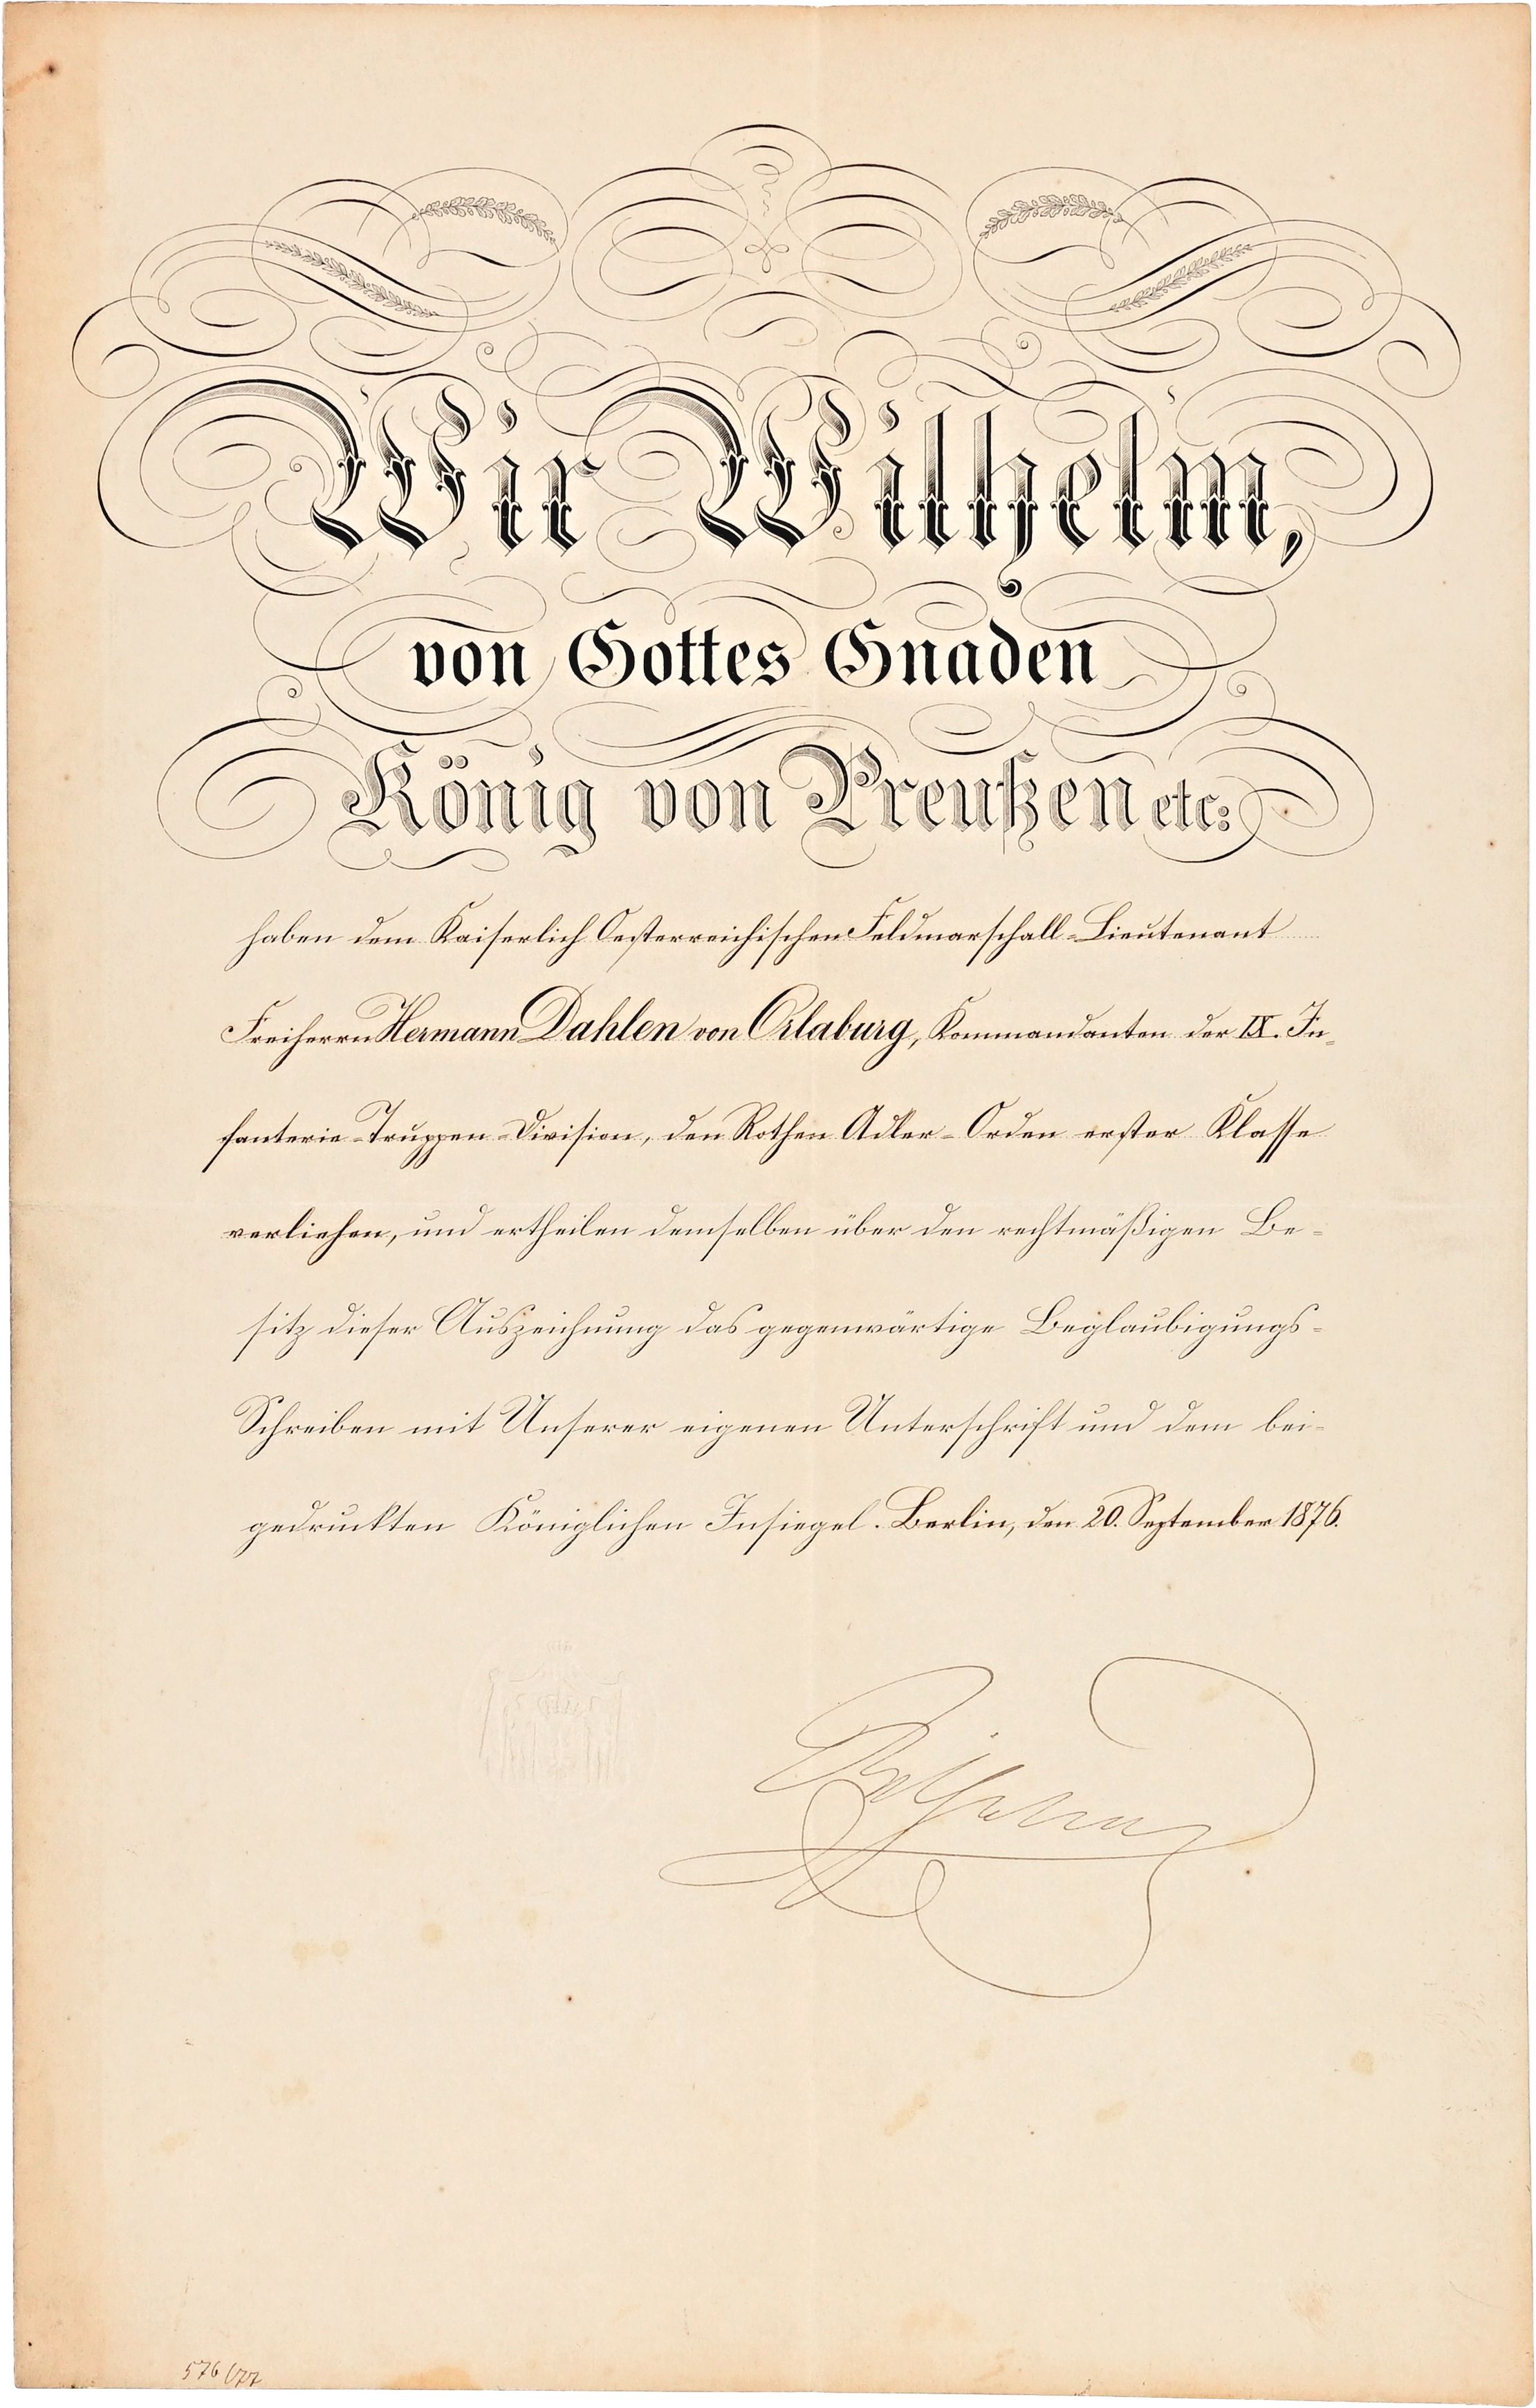 Wir Wilhelm,
von Gottes Gnaden
König von Preußen etc:
haben dem Kaiserlich Oesterreichischen Feldmarschall-Lieutenant
Freiherrn Hermann Dahlen von Orlaburg, Kommandanten der IX. In-
fanterie-Truppen-Division, den Rothen Adler-Orden erster Klasse
verliehen, und ertheilen demselben über den rechtmäßigen Be-
sitz dieser Auszeichnung das gegenwärtige Beglaubigungs-
Schreiben mit Unserer eigenen Unterschrift und dem bei-
gedruckten Königlichen Insiegel. Berlin, den 20. September 1876.
Wilhelm